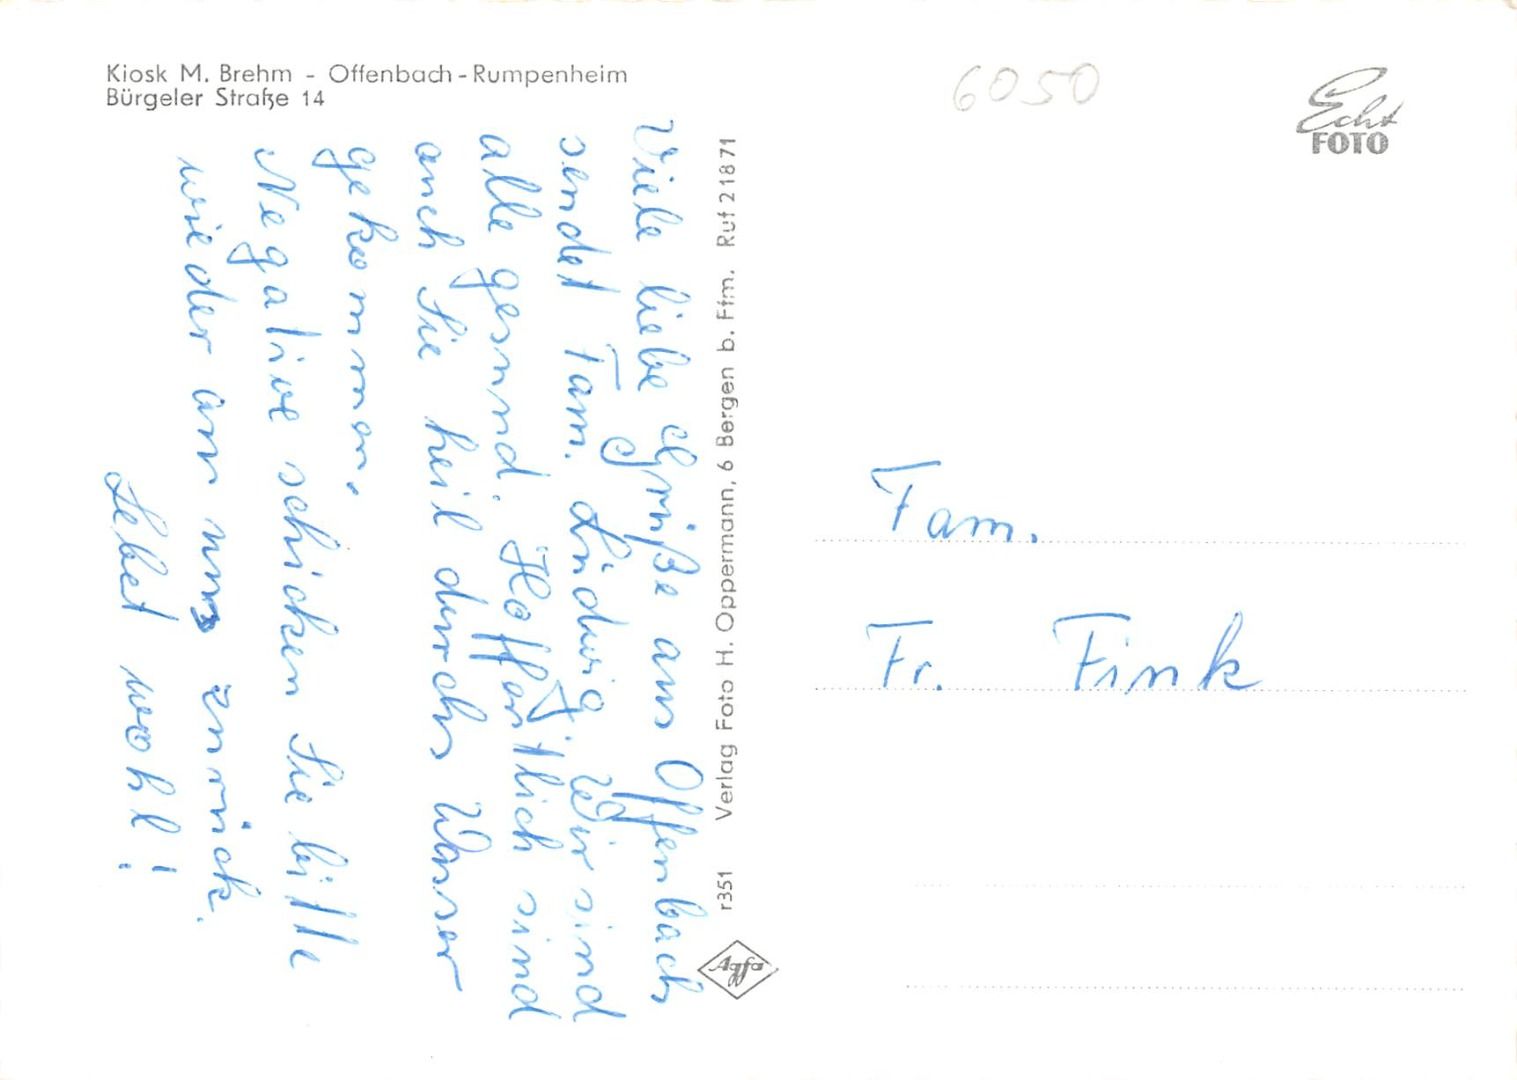 Kiosk M. Brehm - Offenbach-Rumpenheim
Bürgeler Straße 14
6050
Echt
FOTO
Viele liebe Grüße aus Offenbach
sendet Fam. Ludwig. Wir sind
alle gesund. Hoffentlich sind
auch Sie heil durchs Wasser
gekommen.
Negative schicken Sie bitte
wieder an uns zurück.
Lebet wohl!
r351 Verlag Foto H. Oppermann, 6 Bergen b. Ffm. Ruf 21871
Agfa
Fam.
Fr. Fink